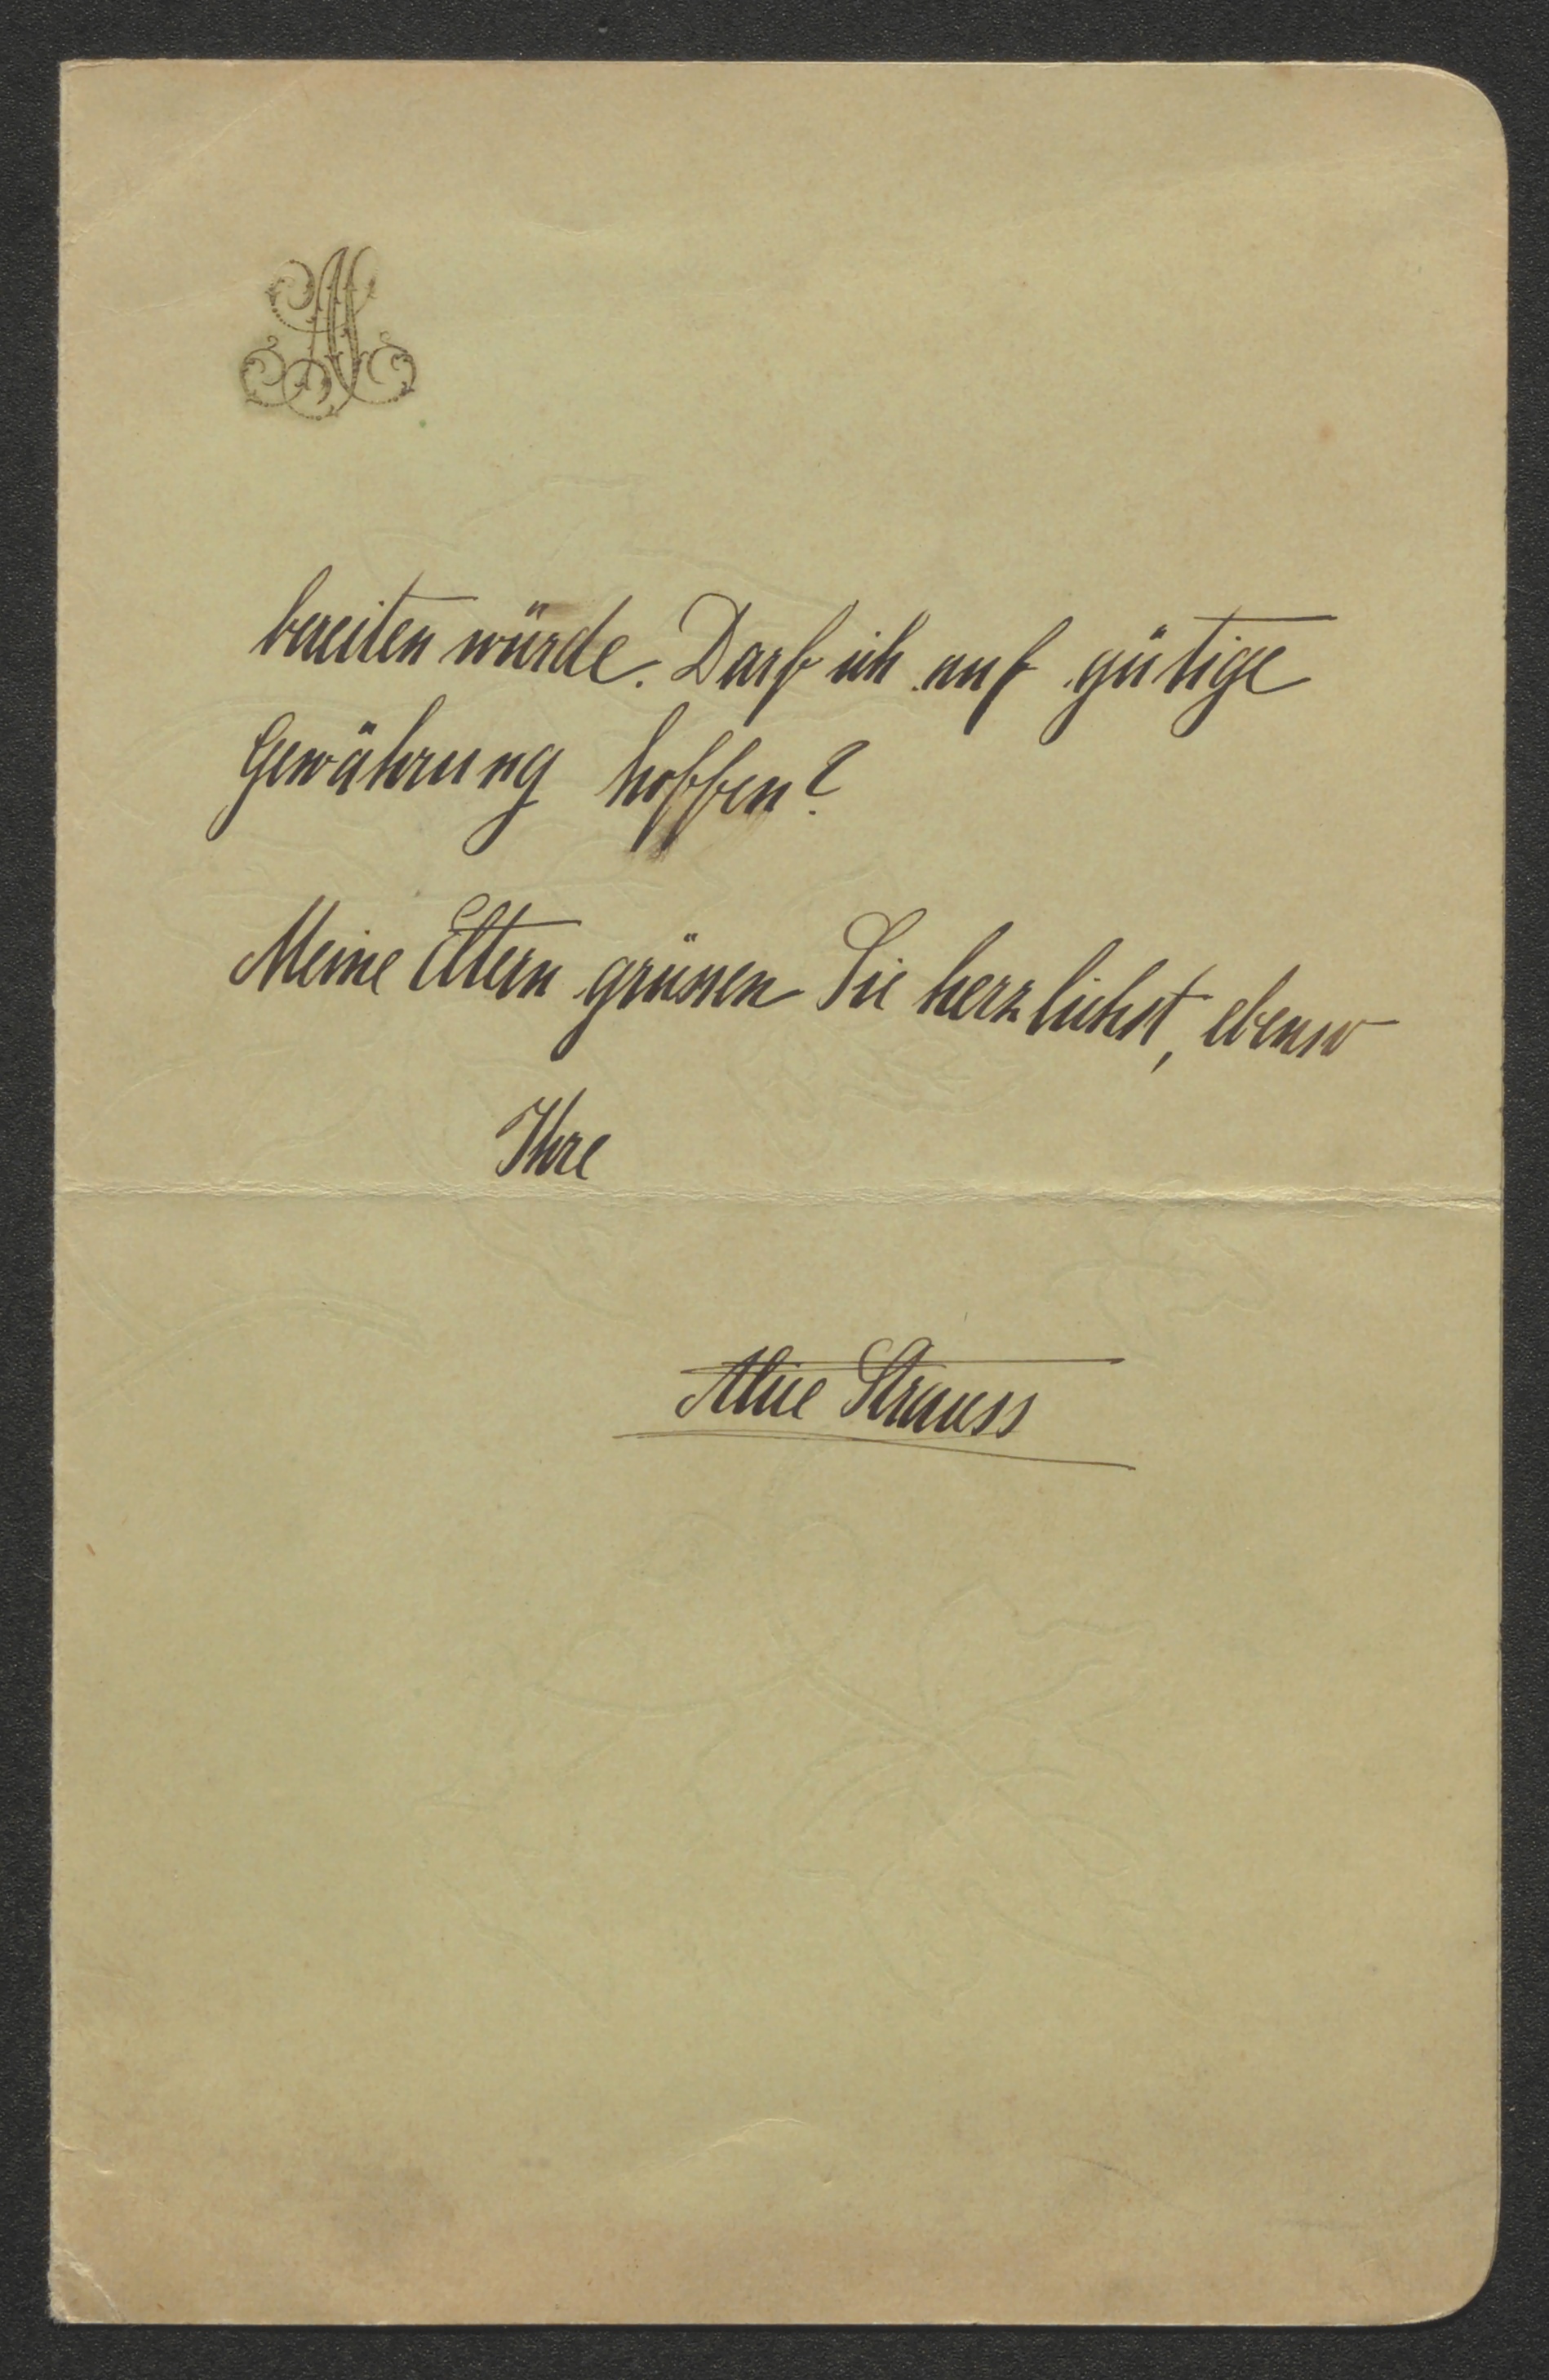 bereiten würde. Darf ich auf gütige
Gewährung hoffen?
Meine Eltern grüssen Sie herzlichst, ebenso
Ihre
Alice Strauss